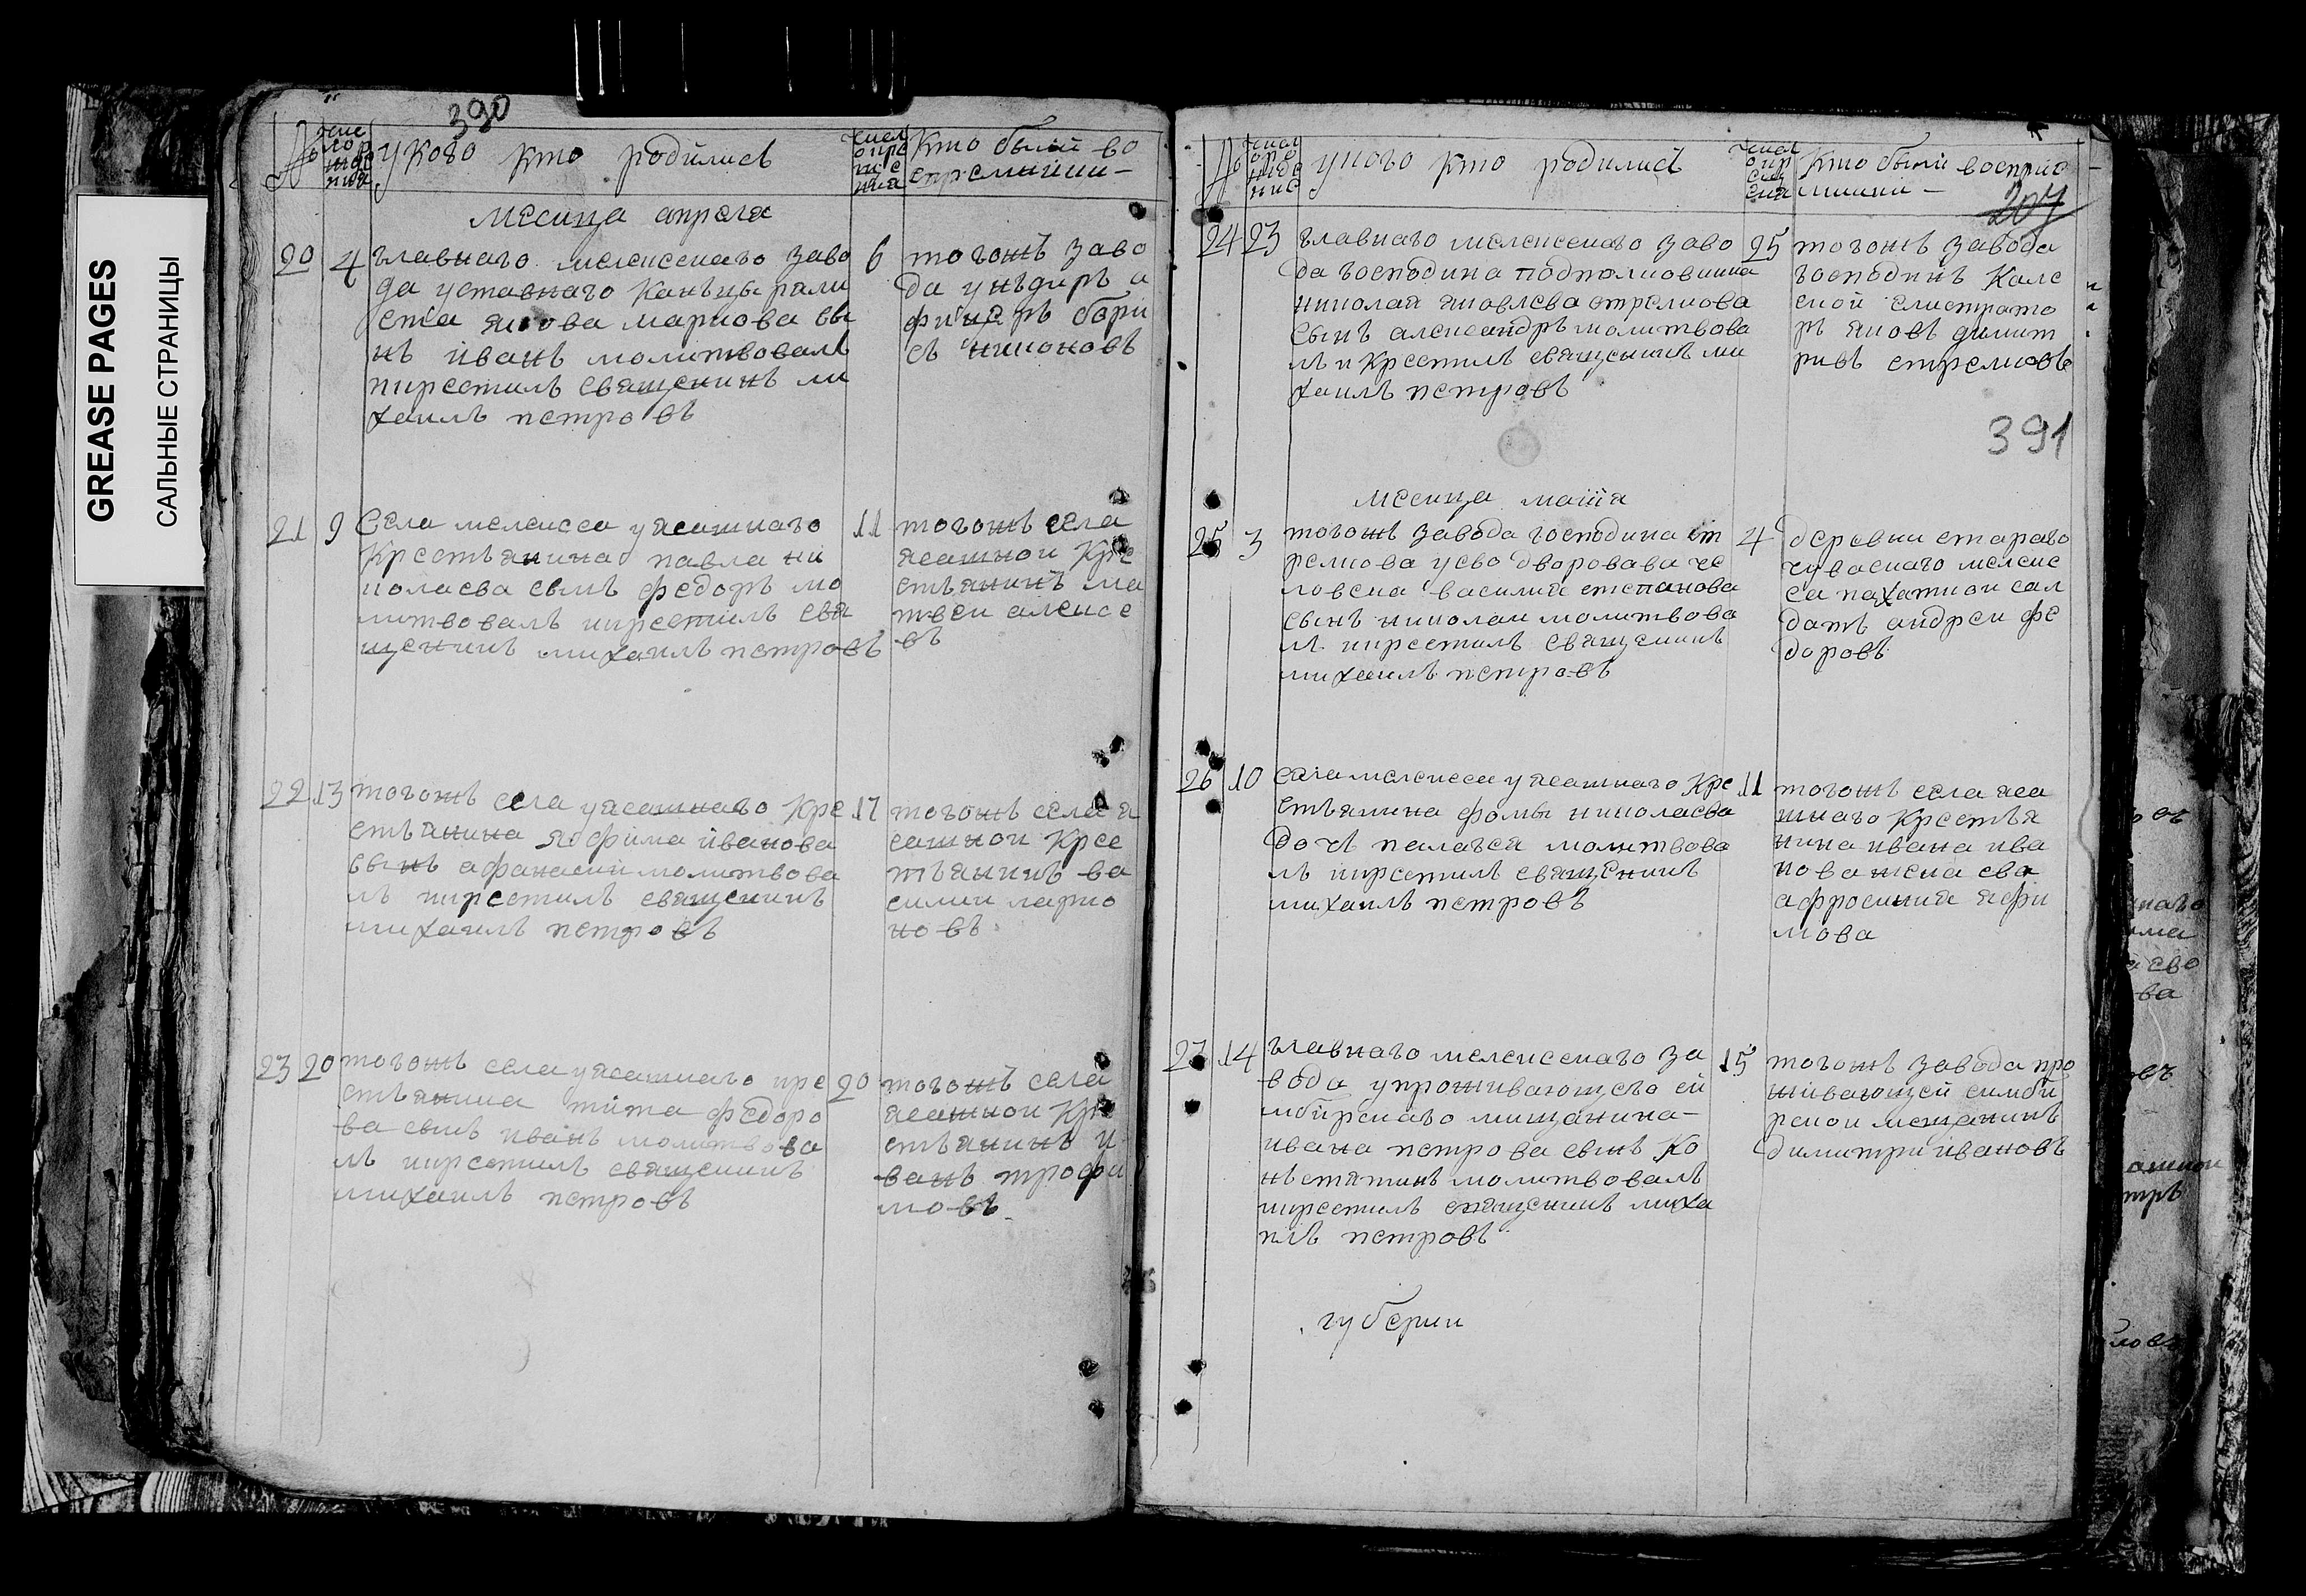 GREASE PAGES
САЛЬНЫЕ СТРАНИЦЫ
390
№
числ
о ро
жде
ния
у кого кто родились
числ
о кре
ще
ния
Кто были во
спремники
месица апреля
20
4
главнаго мелекескаго заво
да уставнаго канъцырали
ста якова маркова сы
нъ иванъ молитвовалъ
икрестилъ священикъ ми
хаилъ петровъ
6
тогожъ заво
да унъдиръ о
фицеръ бори
съ никоновъ
21
9
Села мелекеса у ясашнаго
Крестьянина павла ни
колаева сынъ федоръ мо
литвовалъ икрестилъ свя
щеникъ михаилъ петровъ
11
тогожъ села
ясашной Кре
стьянинъ ма
твеи алексе
въ
22
13
тогожъ села уясашнаго Кре
стьянина яфима иванова
сынъ афанасии молитвова
лъ икрестилъ священикъ
михаилъ петровъ
17
тогожъ села я
сашнои Крес
тьянинъ ва
силии ларио
новъ
23
20
тогожъ села уясашнаго кре
стьянина тита федоро
ва сынъ иванъ молитвова
лъ икрестилъ священикъ
михаилъ петровъ
20
тогожъ села
ясашнои Кре
стьянинъ и
ванъ трофи
мовъ
№
у кого кто родились
Кто были восприе
мники
207
24
23
главнаго мелекескаго заво
да господина подполковника
николая яковлева стрелкова
сынъ александръ молитвова
лъ и Крестилъ священикъ ми
хаилъ петровъ
25
тогожъ завода
господинъ Кале
ской
ръ яковъ димит
ривъ стрелковъ
391
месица маиия
25
3
тогожъ завода господина ст
релкова уево дворовава че
ловека василия стспанова
сынъ николаи молитвова
лъ икрестилъ священикъ
михаилъ петровъ
4
деревни стараго
чувасшаго мелеке
са пахатнои сал
датъ андреи фе
доровъ
26
10
села мелекеса у ясашнаго Кре
стьянина фомы николаева
дочь палагея молитвова
лъ икрестилъ священикъ
михаилъ петровъ
11
тогожъ села яса
шнаго Крестья
нина ивана ива
нова жена ева
афросиния яфи
мова
27
14
главнаго мелекескаго за
вода упроживающего си
мбирскаго мищанина
ивана петрова сынъ Ко
нъстятинъ молитвовалъ
икрестилъ священикъ миха
илъ петровъ
15
тогожъ завода про
живающей симби
рскои мещанинъ
димитри ивановъ
губернии